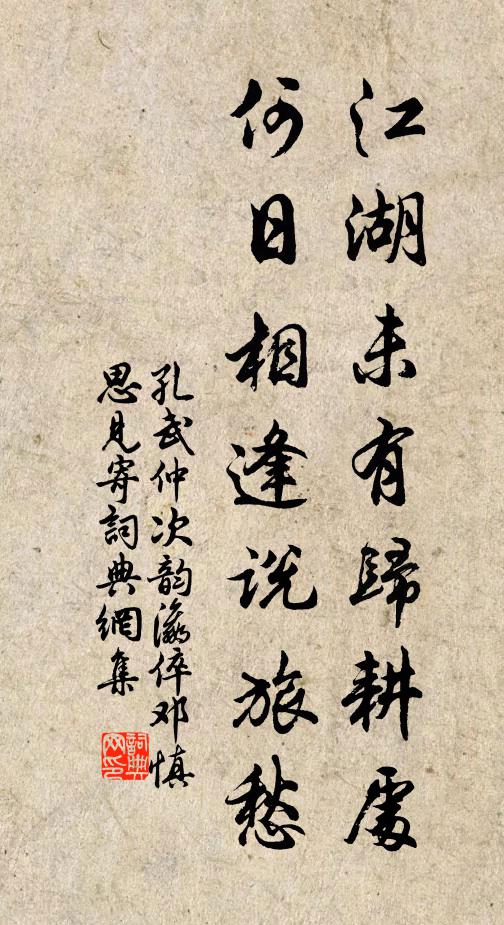 江湖未有歸耕處
何日相逢說旅愁
孔武仲次韵瀛倅邓慎
思見寄詞典網集
詞典
网印